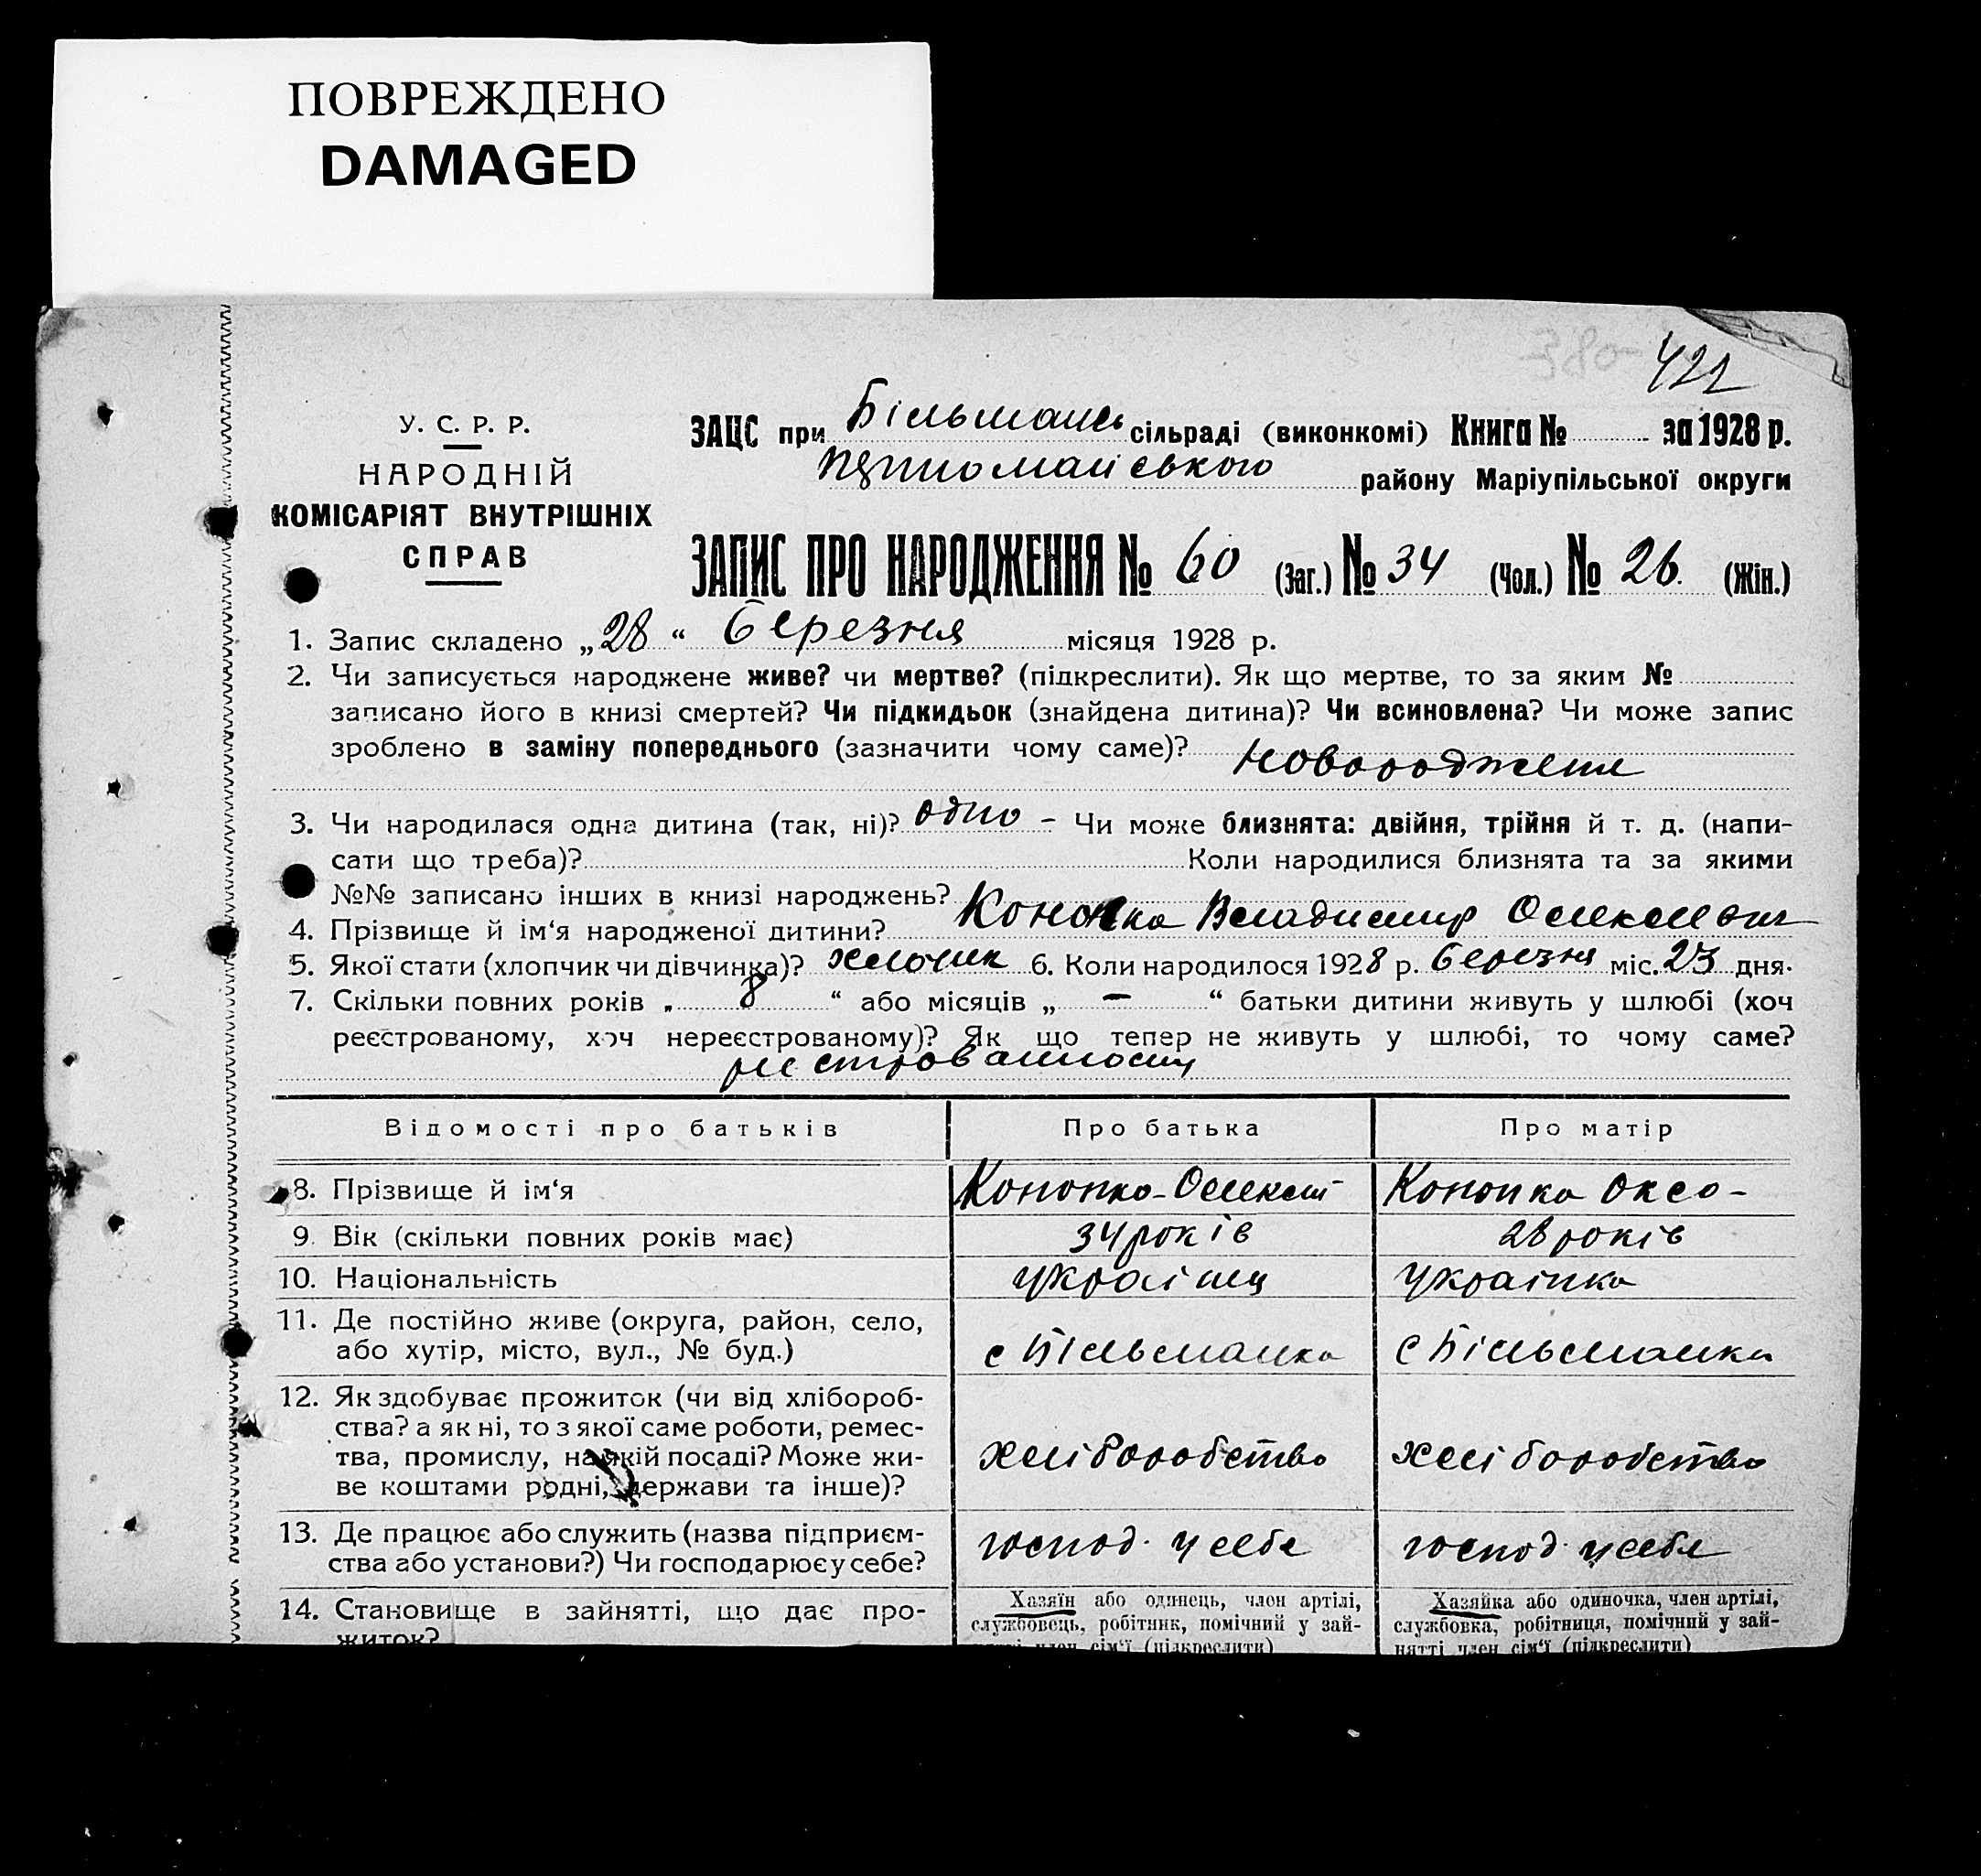 ПОВРЕЖДЕНО
DAMAGED
421
У. С. Р. Р.
НАРОДНІЙ
КОМІСАРІЯТ ВНУТРІШНІХ
СПРАВ
ЗАЦС при Більмань сільраді (виконкомі) Книга № за 1928 р.
району Маріупільської округи
ЗАПИС ПРО НАРОДЖЕННЯ № 60 (Заг.) № 34 (Чол.) № 26. (Жін.)
1. Запис складено „28“ березня місяця 1928 р.
2. Чи записується народжене живе? чи мертве? (підкреслити). Як що мертве, то за яким №
записано його в книзі смертей? Чи підкидьок (знайдена дитина)? Чи всиновлена? Чи може запис
зроблено в заміну попереднього (зазначити чому саме)?
3. Чи народилася одна дитина (так, ні)? одно - Чи може близнята: двійня, трійня й т. д. (напи-
сати що треба)? Коли народилися близнята та за якими
№№ записано інших в книзі народжень?
4. Прізвище й ім‘я народженої дитини? Конопка Владимир
5. Якої стати (хлопчик чи дівчинка)? хлопчик 6. Коли народилось 1928 р. березня міс. 23 дня.
7. Скільки повних років „ 8 “ або місяців „ — “ батьки дитини живуть у шлюбі (хоч
реєстрованому, хоч нереєстрованому)? Як що тепер не живуть у шлюбі, то чому саме?
Відомості про батьків Про батька Про матір
8. Прізвище й ім‘я Конопко - Олексій Конопка Оксо -
9. Вік (скільки повних років має) 34 років 28 років
10. Національність українц українка
11. Де постійно живе (округа, район, село,
або хутір, місто, вул., № буд.) с Більманка с Більманка
12. Як здобуває прожиток (чи від хлібороб-
ства? а як ні, то з якої саме роботи, ремес-
тва, промислу, на якій посаді? Може жи- хліборобство хліборобство
ве коштами родні, держави та інше)?
13. Де працює або служить (назва підприєм- господ. у себе господ. у себе
ства або установи?) Чи господарює у себе?
14. Становище в зайнятті, що дає про-
житок?
Хазяїн або одинець, член артілі,
службовець, робітник, помічний у зай-
нятті член сім‘ї (підкреслити)
Хазяйка або одиночка, член артілі,
службовка, робітниця, помічний у зай-
нятті член сім‘ї (підкреслити)